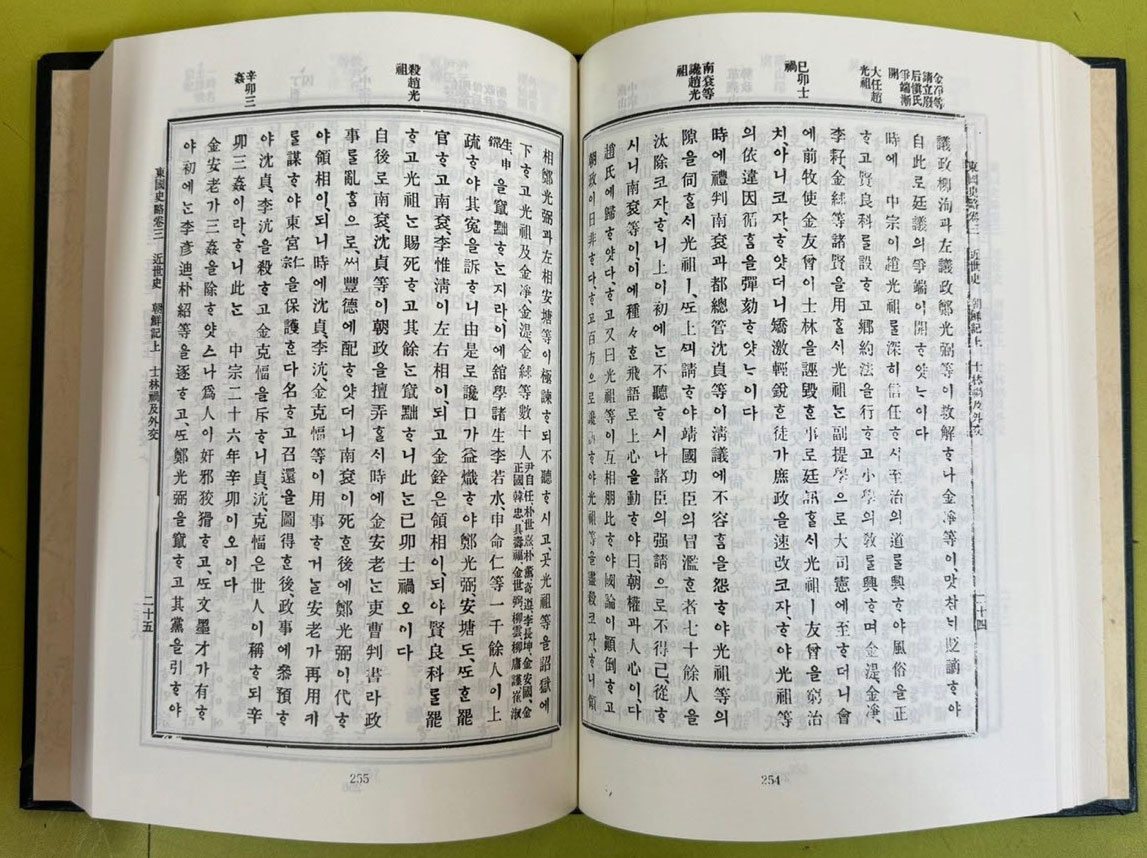 金凈等
請立廢
后愼氏
爭端漸
開
大任趙
光祖
己卯士
禍
南袞等
讒趙光
祖
東國史略卷三 近世史 朝鮮記上 士林禍及外交
二十四
議政柳洵과左議政鄭光弼等이救解ᄒᆞ나金凈等이,맛참ᄂᆡ貶謫ᄒᆞ야
自此로廷議의爭端이開ᄒᆞ얏ᄂᆞ이다
時에 中宗이趙光祖를深히信任ᄒᆞ시至治의道를興ᄒᆞ야風俗을正
ᄒᆞ고賢良科를設ᄒᆞ고鄕約法을行ᄒᆞ고小學의敎를興ᄒᆞ며金湜,金凈,
李耔,金絿等諸賢을用ᄒᆞᆯᄉᆡ光祖ᄂᆞᆫ副提學으로大司憲에至ᄒᆞ더니會
에前牧使金友曾이士林을誣毁ᄒᆞᆫ事로廷鞫ᄒᆞᆯᄉᆡ光祖ㅣ友曾을窮治
치,아니코자,ᄒᆞ얏더니矯激輕銳ᄒᆞᆫ徒가庶政을速改코자,ᄒᆞ야光祖等
의依違因循ᄒᆞᆷ을彈劾ᄒᆞ얏ᄂᆞ이다
時에禮判南袞과都總管沈貞等이淸議에不容ᄒᆞᆷ을怨ᄒᆞ야光祖等의
隙을伺ᄒᆞᆯᄉᆡ光祖ㅣ,ᄯᅩ上ᄭᅴ請ᄒᆞ야靖國功臣의冒濫ᄒᆞᆫ者七十餘人을
汰除코자,ᄒᆞ니上이初에ᄂᆞᆫ不聽ᄒᆞ시나諸臣의强請으로不得已,從ᄒᆞ
시니南袞等이,이에種々ᄒᆞᆫ飛語로上心을動ᄒᆞ야曰,朝權과人心이,다
趙氏에歸ᄒᆞ얏다,ᄒᆞ고又曰光祖等이互相朋比ᄒᆞ야國論이顚倒ᄒᆞ고
朝政이日非ᄒᆞ다,ᄒᆞ고百方으로讒訴ᄒᆞ야光祖等을盡殺코자,ᄒᆞ니領
254
殺趙光
祖
辛卯三
姦
相鄭光弼과左相安塘等이極諫ᄒᆞ되不聽ᄒᆞ시고,곳光祖等을詔獄에
下ᄒᆞ고光祖及金凈,金湜,金絿等數十人尹自任朴世熹朴薰奇遵李長坤,金安國,金
正國韓忠,具壽福金世弼,柳雲柳庸謹崔淑
生,申
鏛을竄黜ᄒᆞᄂᆞᆫ지라이에舘學諸生李若水,申命仁等一千餘人이上
疏ᄒᆞ야其寃을訴ᄒᆞ니由是로讒口가益熾ᄒᆞ야鄭光弼,安塘도,ᄯᅩᄒᆞᆫ罷
官ᄒᆞ고南袞,李惟淸이左右相이되고金銓은領相이,되야賢良科를罷
ᄒᆞ고光祖ᄂᆞᆫ賜死ᄒᆞ고其餘ᄂᆞᆫ竄黜ᄒᆞ니此ᄂᆞᆫ己卯士禍오이다
自後로南袞,沈貞等이朝政을擅弄ᄒᆞᆯᄉᆡ時에金安老ᄂᆞᆫ吏曹判書라政
事를亂ᄒᆞᆷ으로,써豐德에配ᄒᆞ얏더니南袞이死ᄒᆞᆫ後에鄭光弼이代ᄒᆞ
야領相이,되니時에沈貞,李沆,金克愊等이用事ᄒᆞ거ᄂᆞᆯ安老가再用키
를謀ᄒᆞ야東宮仁宗을保護ᄒᆞᆫ다名ᄒᆞ고召還을圖得ᄒᆞᆫ後,政事에參預ᄒᆞ
야沈貞,李沆을殺ᄒᆞ고金克愊을斥ᄒᆞ니貞,沆,克愊은世人이稱ᄒᆞ되辛
卯三姦이라,ᄒᆞ니此ᄂᆞᆫ 中宗二十六年辛卯이오이다
金安老가三姦을除ᄒᆞ얏스나爲人이奸邪狡猾ᄒᆞ고,ᄯᅩ文墨才가有ᄒᆞ
야初에ᄂᆞᆫ李彦迪,朴紹等을逐ᄒᆞ고,ᄯᅩ鄭光弼을竄ᄒᆞ고其黨을引ᄒᆞ야
東國史略卷三 近世史 朝鮮記上 士林禍及外交
二十五
255